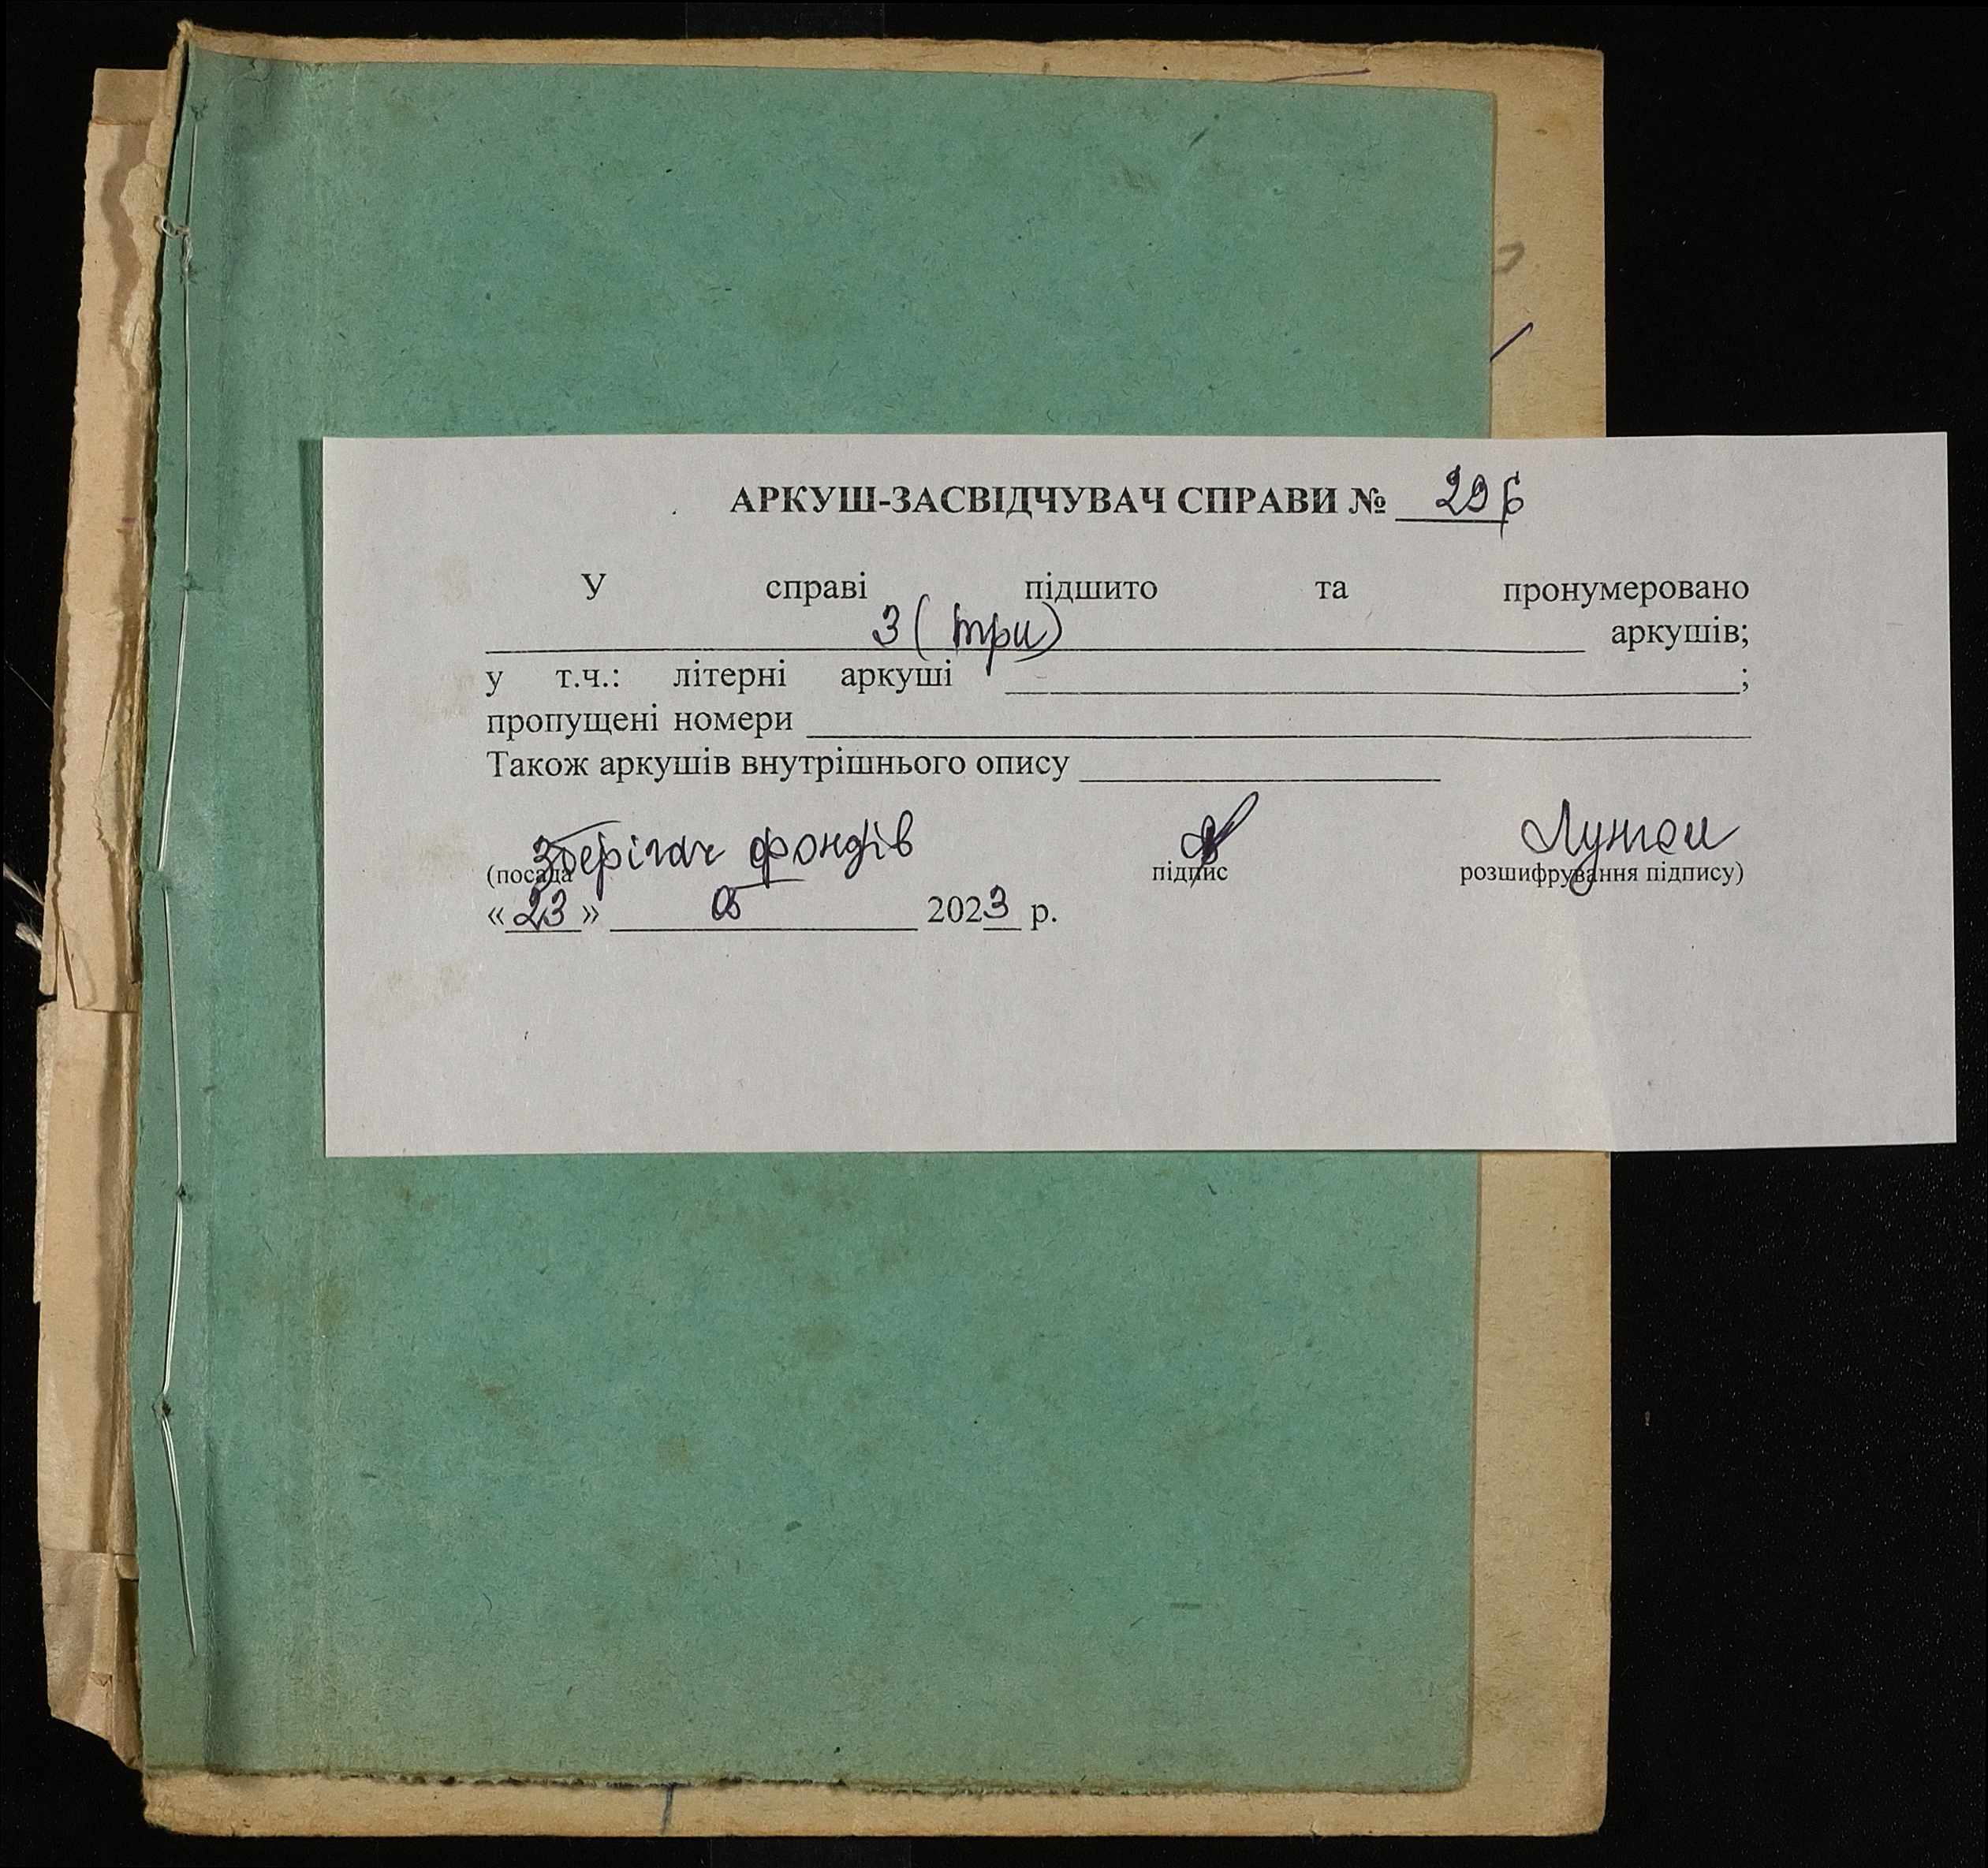 АРКУШ-ЗАСВІДЧУВАЧ СПРАВИ № 296
У справі підшито та пронумеровано
3 (три) аркушів;
у т.ч.: літерні аркуші ;
пропущені номери
Також аркушів внутрішнього опису
Зберігач фондів
(посада підпис розшифрування підпису)
«23» 05 2023 р.